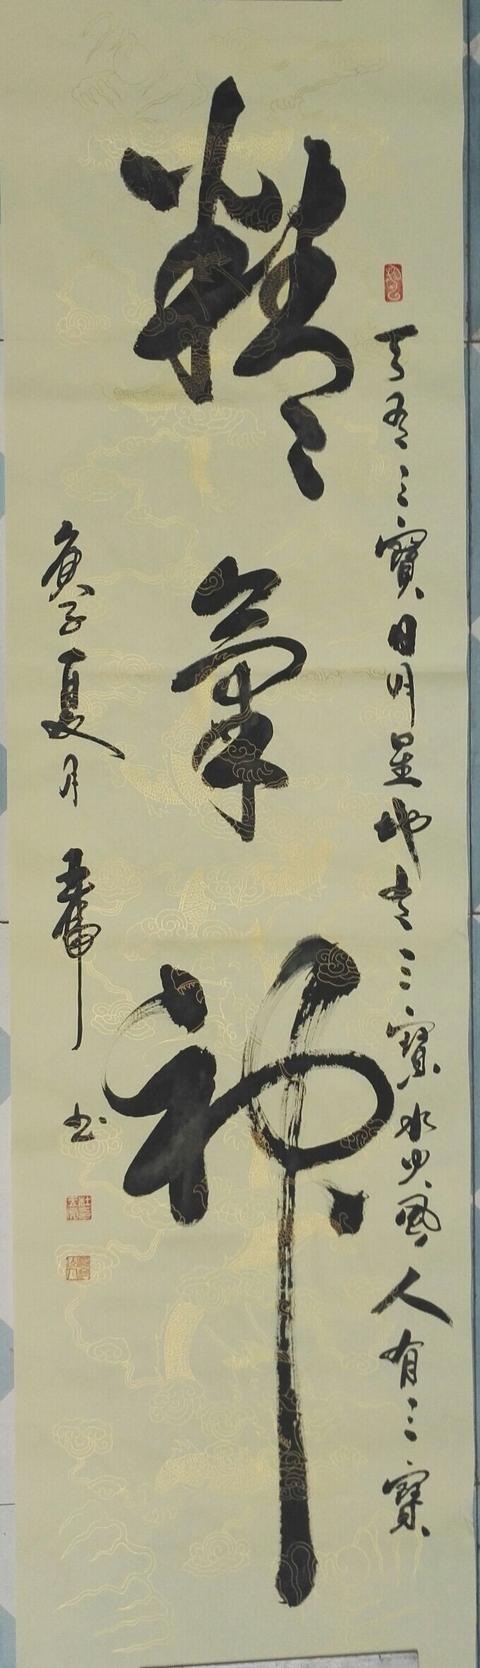 天有三寶日月星地有三寶水火風人有三寶
精氣神
庚子夏月
書